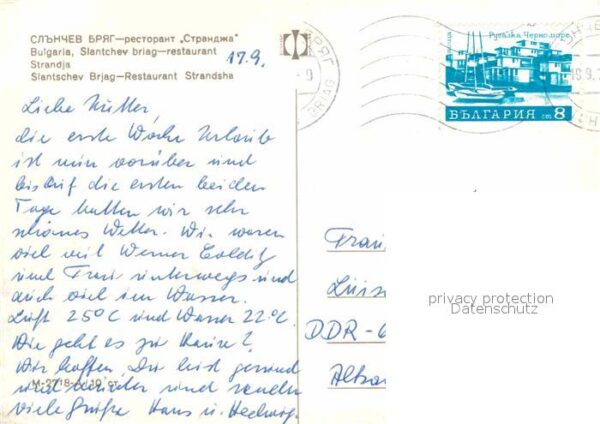 СЛЪНЧЕВ БРЯГ—ресторант „Странджа"
Bulgaria, Slantchev briag—restaurant
Strandja
Slantschev Brjag—Restaurant Strandsha
17.9.
Liebe Mutter,
die erste Woche Urlaub
ist nun vorüber und
bis auf die ersten beiden
Tage hatten wir sehr
schönes Wetter. Wir waren
viel mit Werner Colditz
und Frau unterwegs und
auch viel im Wasser.
Luft 25°C und Wasser 22°C.
Wie geht es zu Hause?
Wir hoffen, Du bist gesund
und munter und senden
viele Grüße Hans u. Hedwig.
М-2718-А/10 ст.
БРЯГ
BRIAG
Русалка Черно море
БЪЛГАРИЯ ст 8
Frau
Luise
DDR-6
Alten
privacy protection
Datenschutz